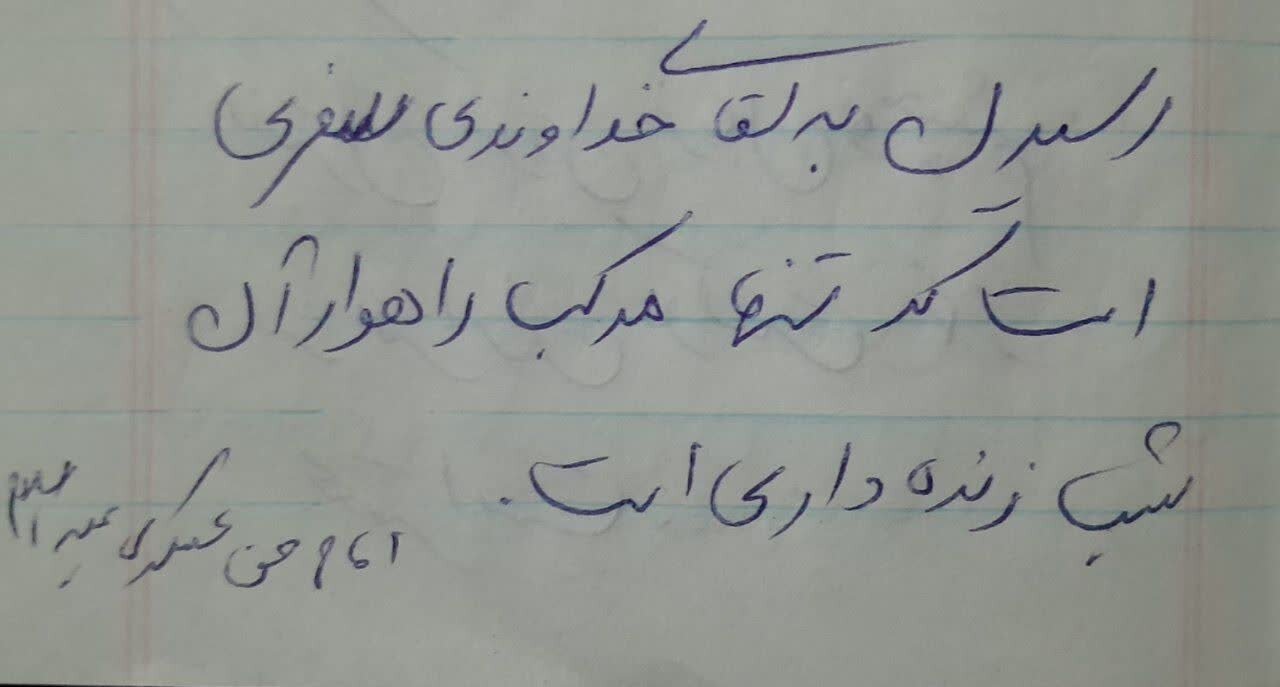 رسیدن به لقای خداوندی سفری
است که تنها مرکب راهوار آن
شب زنده داری است.
امام حسن عسکری علیه السلام